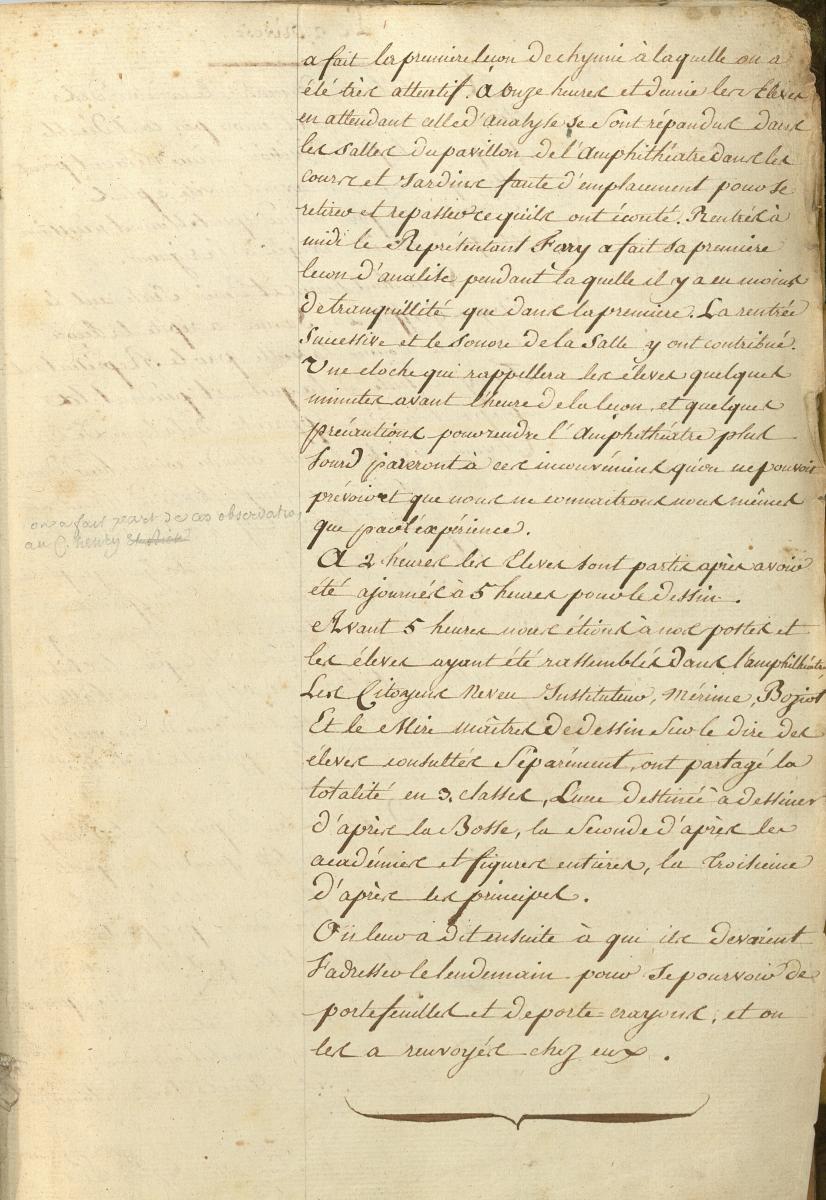 a fait la premiere leçon de chymie à laquelle on a
été très attentif. A onze heures et demie les Eleves
en attendant celle d'analyse se sont répandus dans
les salles du pavillon de l'amphithéatre dans les
cours et Jardins faute d'emplacement pour se
retirer et repasser ce qu'ils ont écouté. Rentrés à
midi le Représentant Fery a fait sa première
leçon d'analise pendant laquelle il y a eu moins
de tranquillité que dans la premiere. La rentrée
successive et le sonore de la salle y ont contribué.
Une cloche qui rappellera les éleves quelques
minutes avant l'heure de la leçon, et quelques
précautions pour rendre l'amphithéatre plus
sourd pareront à ces inconvéniens qu'on ne pouvoit
prévoir et que nous ne connaitrons nous mêmes
que par l'expérience.
on a fait part de ces observations
au C. henry
A 2 heures les Eleves sont partis après avoir
été ajournés à 5 heures pour le dessin.
Avant 5 heures nous étions à nos postes et
les éleves ayant été rassemblés dans l'amphithéatre,
Les Citoyens Neveu Instituteur, Mérimé, Boziot
Et le Mire maîtres de dessin sur le dire des
éleves consultés séparément, ont partagé la
totalité en 3. classes, L'une destinée à dessiner
d'après la Bosse, la seconde d'après les
académies et figures entieres, la troisieme
d'après les principes.
On leur a dit ensuite à qui ils devoient
s'adresser le lendemain pour se pourvoir de
portefeuilles et de porte-crayons, et on
les a renvoyés chez eux.